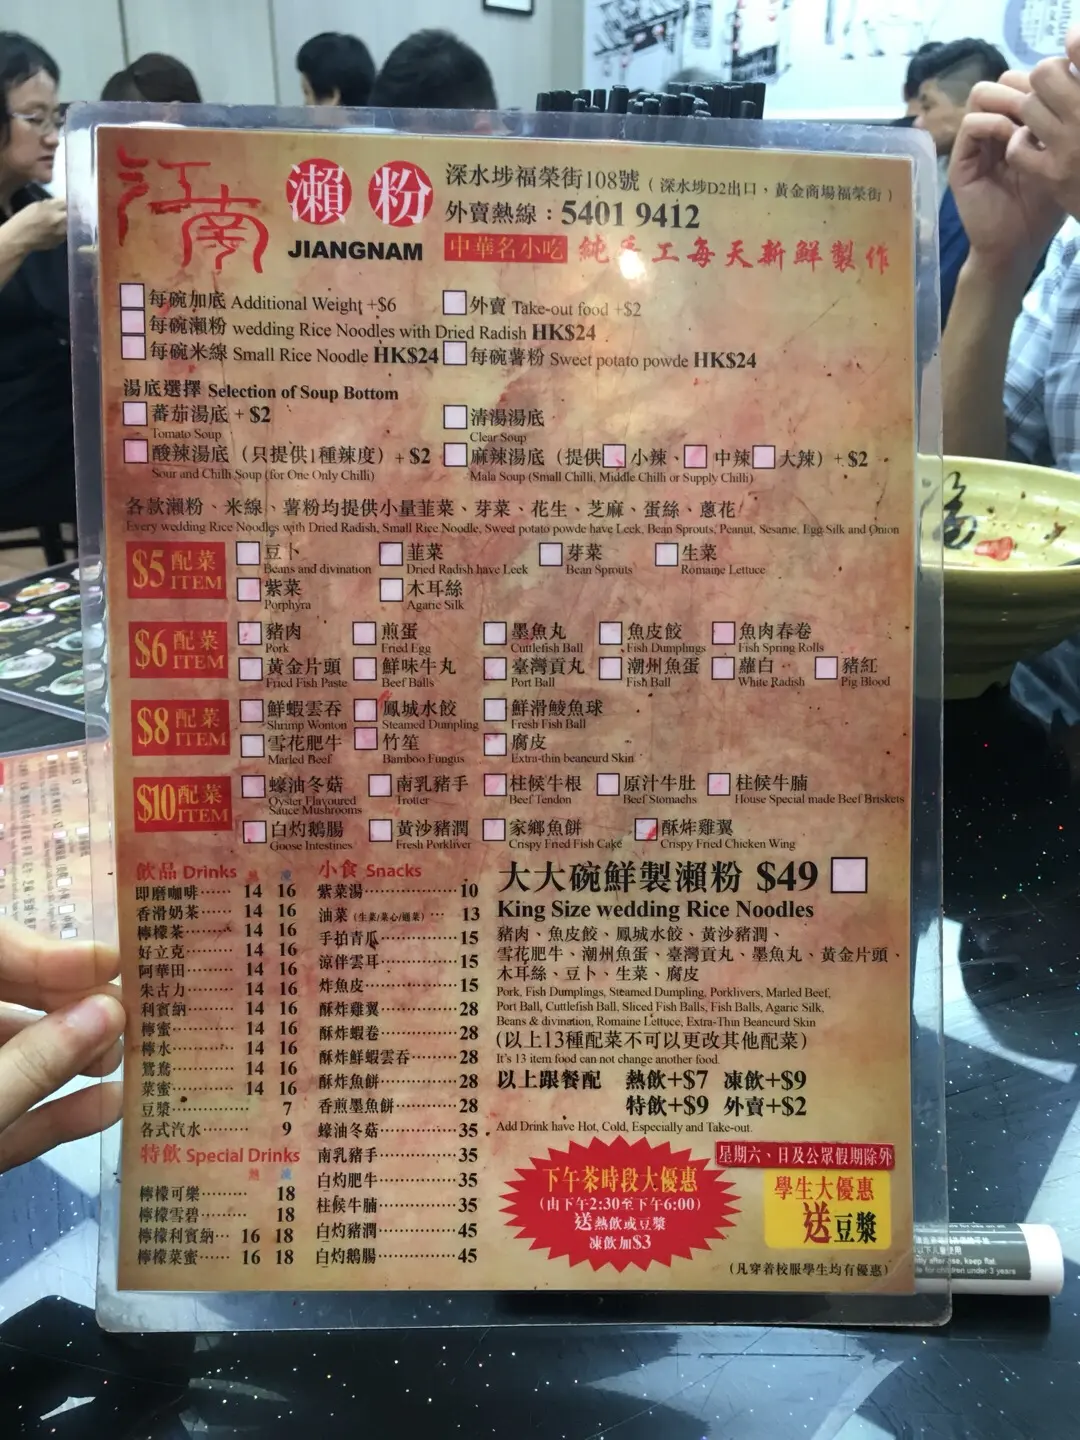 江南 瀨粉 深水埗福榮街108號（深水埗D2出口，黃金商場福榮街）
JIANGNAM 外賣熱線：5401 9412
中華名小吃 純手工每天新鮮製作
每碗加底 Additional Weight +$6 外賣 Take-out food +$2
每碗瀨粉 wedding Rice Noodles with Dried Radish HK$24
每碗米線 Small Rice Noodle HK$24 每碗薯粉 Sweet potato powde HK$24
湯底選擇 Selection of Soup Bottom
蕃茄湯底 + $2 清湯湯底
Tomato Soup Clear Soup
酸辣湯底（只提供1種辣度）+ $2 麻辣湯底（提供 小辣、 中辣 大辣）+ $2
Sour and Chilli Soup (for One Only Chilli) Mala Soup (Small Chilli, Middle Chilli or Supply Chilli)
各款瀨粉、米線、薯粉均提供小量韮菜、芽菜、花生、芝麻、蛋絲、蔥花
Every wedding Rice Noodles with Dried Radish, Small Rice Noodle, Sweet potato powde have Leek, Bean Sprouts, Peanut, Sesame, Egg Silk and Onion
$5 配菜 ITEM
豆卜 韮菜 芽菜 生菜
Beans and divination Dried Radish have Leek Bean Sprouts Romaine Lettuce
紫菜 木耳絲
Porphyra Agaric Silk
$6 配菜 ITEM
豬肉 煎蛋 墨魚丸 魚皮餃 魚肉春卷
Pork Fried Egg Cuttlefish Ball Fish Dumplings Fish Spring Rolls
黃金片頭 鮮味牛丸 臺灣貢丸 潮州魚蛋 蘿白 豬紅
Fried Fish Paste Beef Balls Port Ball Fish Ball White Radish Pig Blood
$8 配菜 ITEM
鮮蝦雲吞 鳳城水餃 鮮滑鯪魚球
Shrimp Wonton Steamed Dumpling Fresh Fish Ball
雪花肥牛 竹笙 腐皮
Marled Beef Bamboo Fungus Extra-thin beancurd Skin
$10 配菜 ITEM
蠔油冬菇 南乳豬手 柱候牛根 原汁牛肚 柱候牛腩
Oyster Flavoured Sauce Mushrooms Trotter Beef Tendon Beef Stomachs House Special made Beef Briskets
白灼鵝腸 黃沙豬潤 家鄉魚餅 酥炸雞翼
Goose Intestines Fresh Porkliver Crispy Fried Fish Cake Crispy Fried Chicken Wing
飲品 Drinks 熱 凍
即磨咖啡…… 14 16
香滑奶茶…… 14 16
檸檬茶…… 14 16
好立克…… 14 16
阿華田…… 14 16
朱古力…… 14 16
利賓納…… 14 16
檸蜜…… 14 16
檸水…… 14 16
鴛鴦…… 14 16
菜蜜…… 14 16
豆漿…… 7
各式汽水…… 9
特飲 Special Drinks
熱 凍
檸檬可樂…… 18
檸檬雪碧…… 18
檸檬利賓納… 16 18
檸檬菜蜜…… 16 18
小食 Snacks
紫菜湯…… 10
油菜（生菜/菜心/通菜）… 13
手拍青瓜…… 15
涼伴雲耳…… 15
炸魚皮…… 15
酥炸雞翼…… 28
酥炸蝦卷…… 28
酥炸鮮蝦雲吞…… 28
酥炸魚餅…… 28
香煎墨魚餅…… 28
蠔油冬菇…… 35
南乳豬手…… 35
白灼肥牛…… 35
柱候牛腩…… 35
白灼豬潤…… 45
白灼鵝腸…… 45
大大碗鮮製瀨粉 $49
King Size wedding Rice Noodles
豬肉、魚皮餃、鳳城水餃、黃沙豬潤、
雪花肥牛、潮州魚蛋、臺灣貢丸、墨魚丸、黃金片頭、
木耳絲、豆卜、生菜、腐皮
Pork, Fish Dumplings, Steamed Dumpling, Porklivers, Marled Beef,
Port Ball, Cuttlefish Ball, Sliced Fish Balls, Fish Balls, Agaric Silk,
Beans & divination, Romaine Lettuce, Extra-Thin Beancurd Skin
(以上13種配菜不可以更改其他配菜)
It's 13 item food can not change another food
以上跟餐配 熱飲+$7 凍飲+$9
特飲+$9 外賣+$2
Add Drink have Hot, Cold, Especially and Take-out.
下午茶時段大優惠
(由下午2:30至下午6:00)
送熱飲或豆漿
凍飲加$3
星期六、日及公眾假期除外
學生大優惠
送豆漿
(凡穿着校服學生均有優惠)
keep flat
children under 3 years